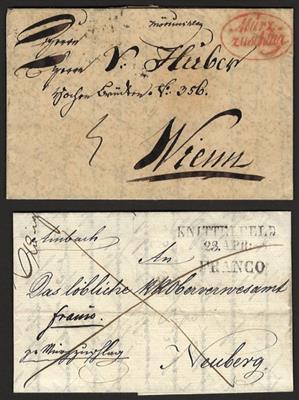 Mürz-
zuschlag
Herrn
Herrn V: Huber
Hohen Brücke N: 356.
Wienn
KNITTELFELD
23. APR:
FRANCO
An
Das löbliche KK Oberverwesamt
franco.
pr Mürzzuschlag
Neuberg.